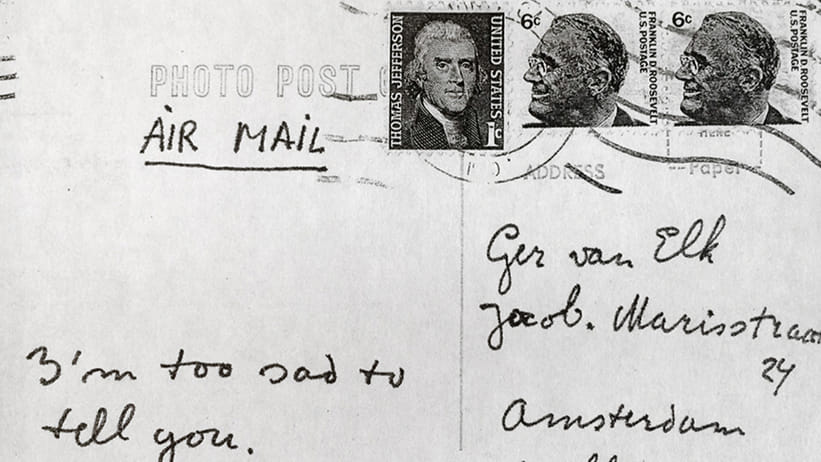 PHOTO POST
AIR MAIL
THOMAS JEFFERSON
UNITED STATES
1c
6c
FRANKLIN D. ROOSEVELT
U.S. POSTAGE
6c
FRANKLIN D. ROOSEVELT
U.S. POSTAGE
HERE
ADDRESS
Paper
I'm too sad to
tell you.
Ger van Elk
Jacob. Marisstraat
24
Amsterdam